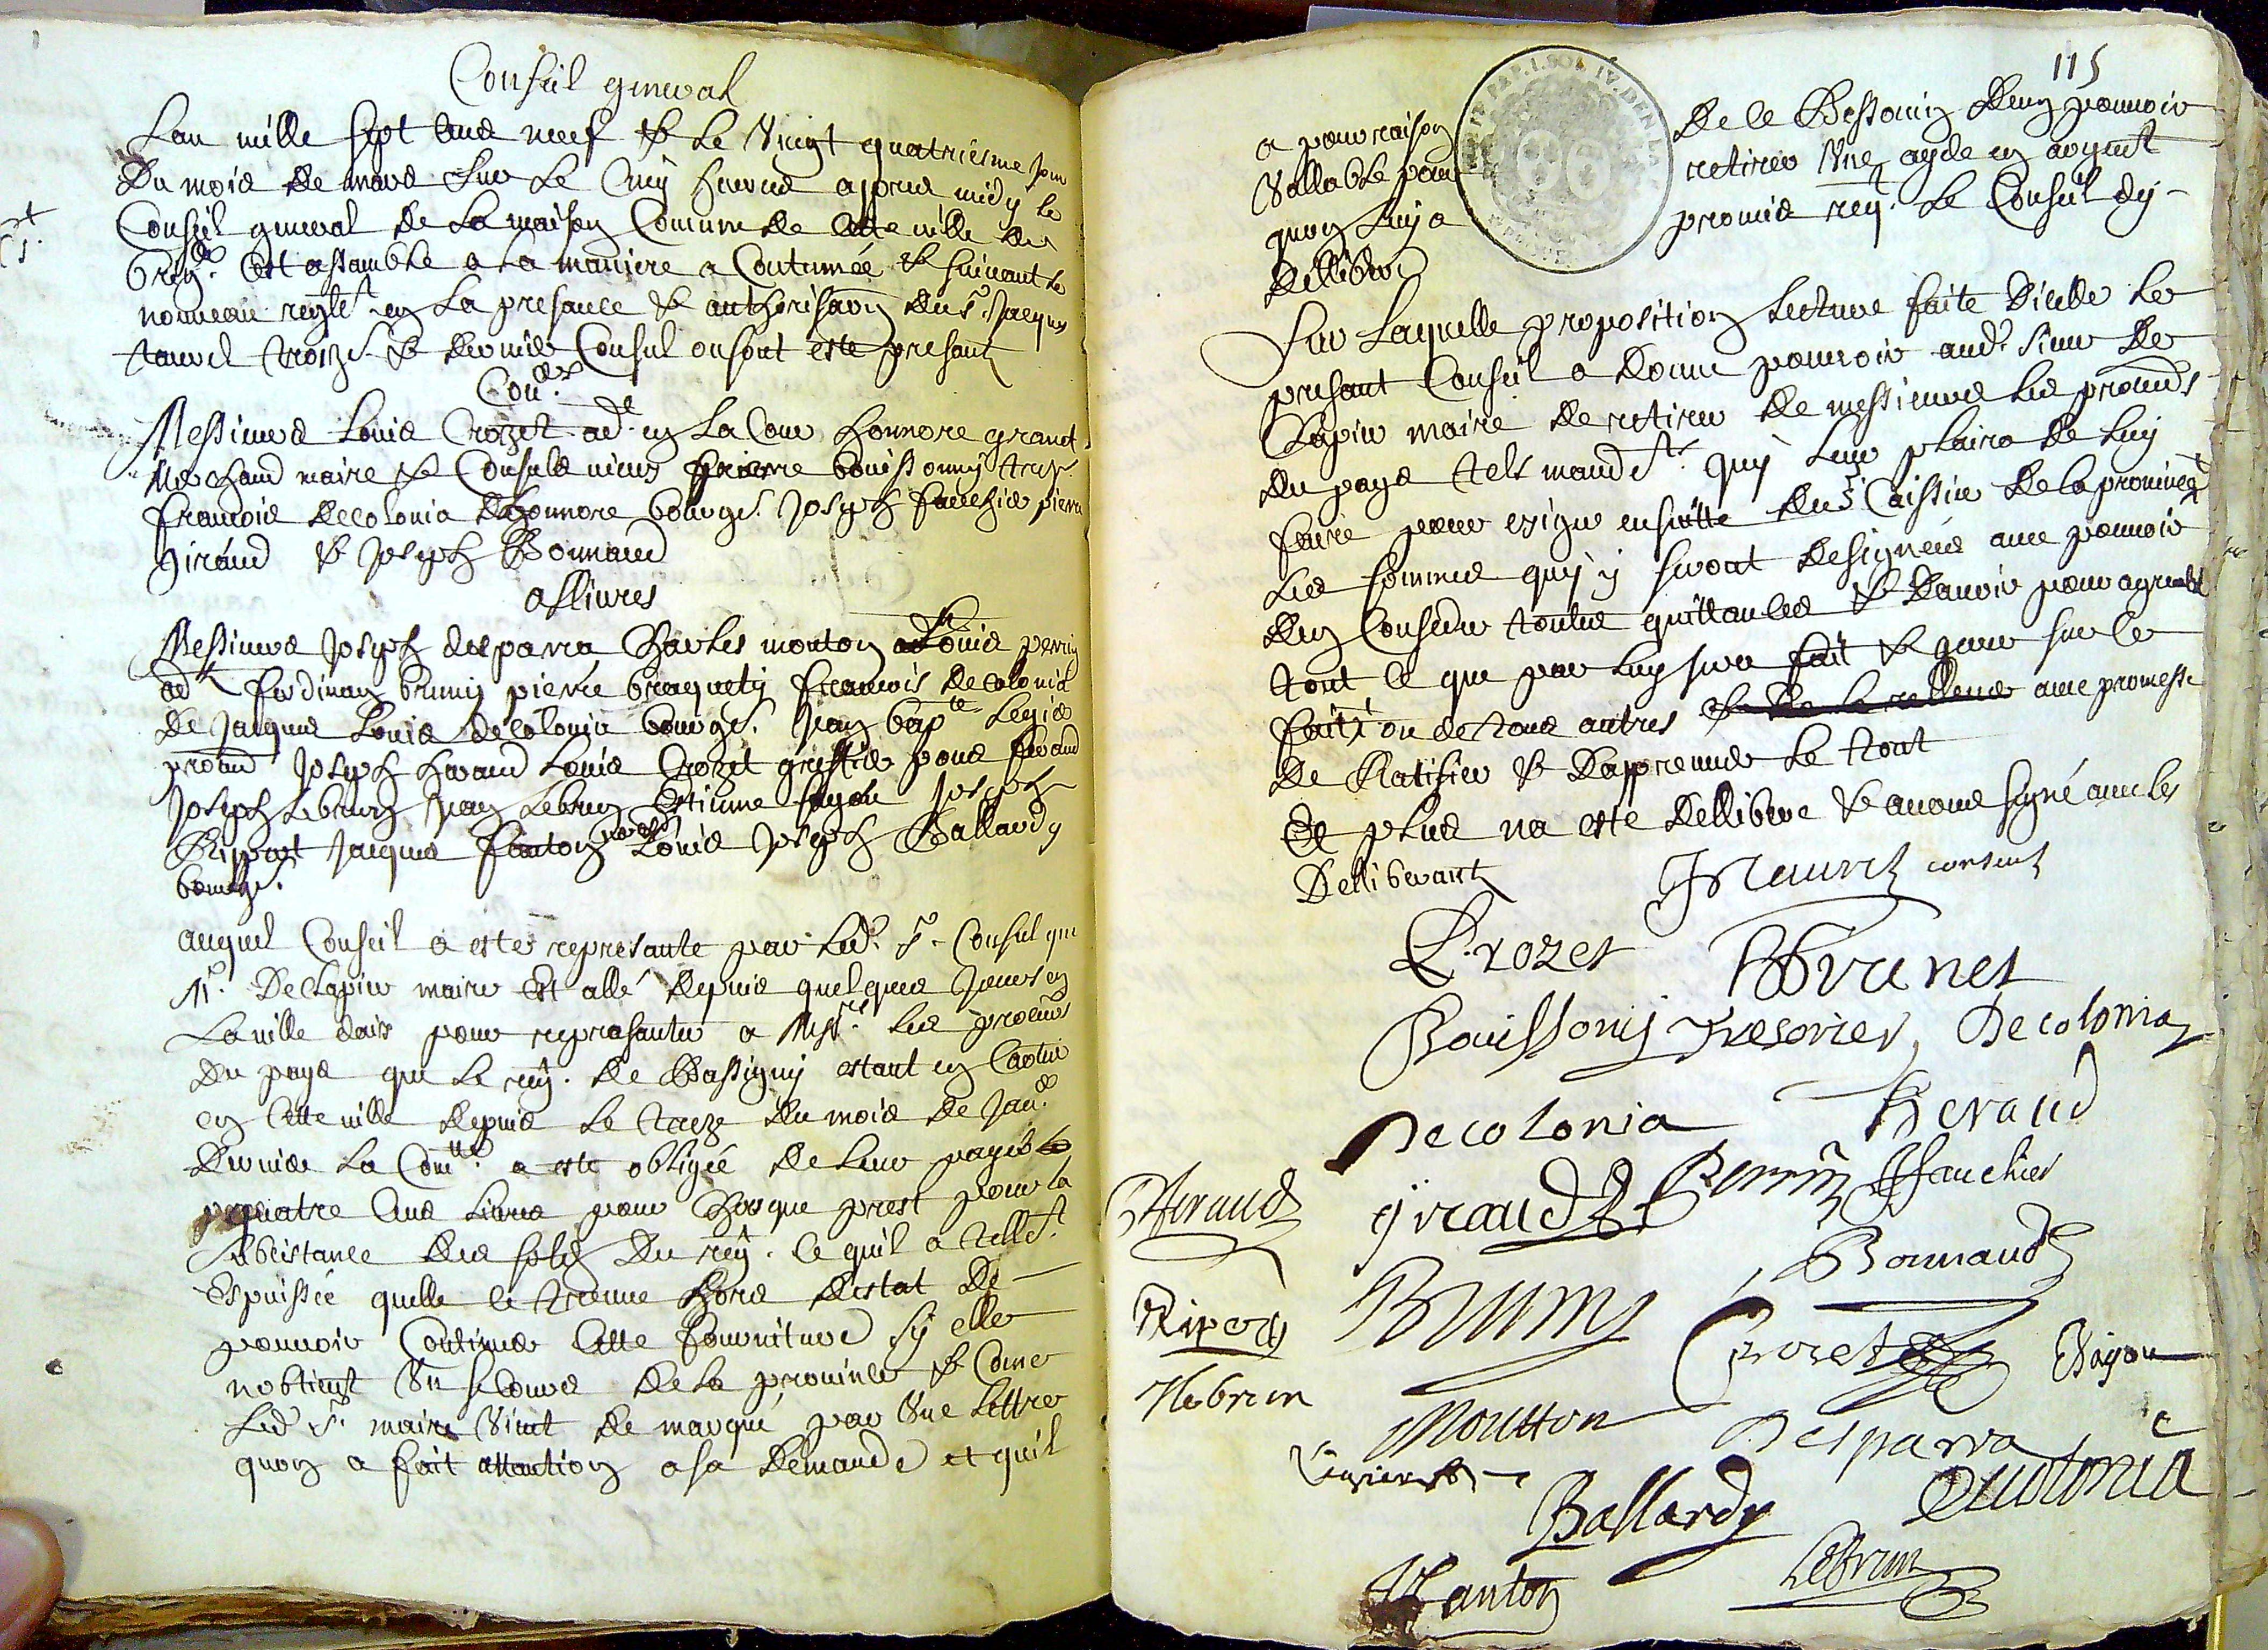 Conseil general
Lan mille sept cens neuf & le vingt quatriesme jour
du mois de mars sur le cinq heures appres midy le
Conseil general de la maison Comune de cette ville de
Brig.es cest assamble a la maniere a Coutumée & suivant le
nouveau reglet. en la presance & authorisaon du sr. Jacques
taurel troize. & dernier Consul ou sont este presant
Con.ers
Messieurs Louis Crozet ad.t en la Cour honnore granet
marchand maire & Consuls vieux pierre bouissony trez.
francois decolonia dhonnore bourge. Joseph fauchier pierre
giraud & Joseph Bonnaud
allivres
Messieurs Joseph desparra Charles mouton Louis perrin
ad.t ferdinan bruny pierre braquety francois decolonia
de jacques Louis decolonia bourge. Jean bap.te Legier
Joseph heraud Louis Crozet greffier pons feraud
Joseph Lebrun Jean Lebrun Estienne fayon Joseph
Rippert Jacques fanton Louis Joseph Ballardy
bourge.
auquel Conseil a este represante par led. sr. Consul que
Mr. de Lapier maire est allé depuis quelques jours en
la ville daix pour represanter a Mess.rs les procurs
du pays que le reg. de Bassigny estant en Cartier
en cette ville depuis le treze du mois de jan.er
dernier la Com.té a este obligée de leur payer
quatre cens livres pour chasque prest pour la
subcistance des solds du reg. ce quil a tellet.
espuissée quelle ce treuve hors destat de
pouvoir Continuer cette fourniture sy elle
nobtient un secours de la province & Come
led sr. maire vient de marqué par une lettre
quon a fait attantion a sa demande et quil
115
a pour raison de ce Bessoin den pouvoir
vallable pour retirer une ayde en argent
quoy luy a promis req. le Conseil dy
delliberer
Sur laquelle proposition lecture faite dicelle le
presant Conseil a donne pouvoir aud. sieur de
Lapier maire de retirer de messieurs les procurs
du pays tels mandts. quy leur plaira de luy
faire pour exiger ensuitte du sr. Caissier de la province
les sommes quy y seront designées avec pouvoir
den Conseder toutes quittances & davoir pour agreable
tout ce que par luy sera fait & gere sur ce
fait, ou de tous autres avec promesse
de Ratifier & dapprouver le tout
Et plus na este dellibere & avons signé avec les
Delliberants
J Taurel consul
Crozet
Brunet
Bouissony tresorier
Decolonia
Decolonia
Heraud
Feraud
giraud
Perrin
Jfauchier
Bonnaud
Ripert
Bruny
Crozet
fayon
Hebrun
Moutton
Desparra
Ballardy
Decolonia
Fanton
Lebrun